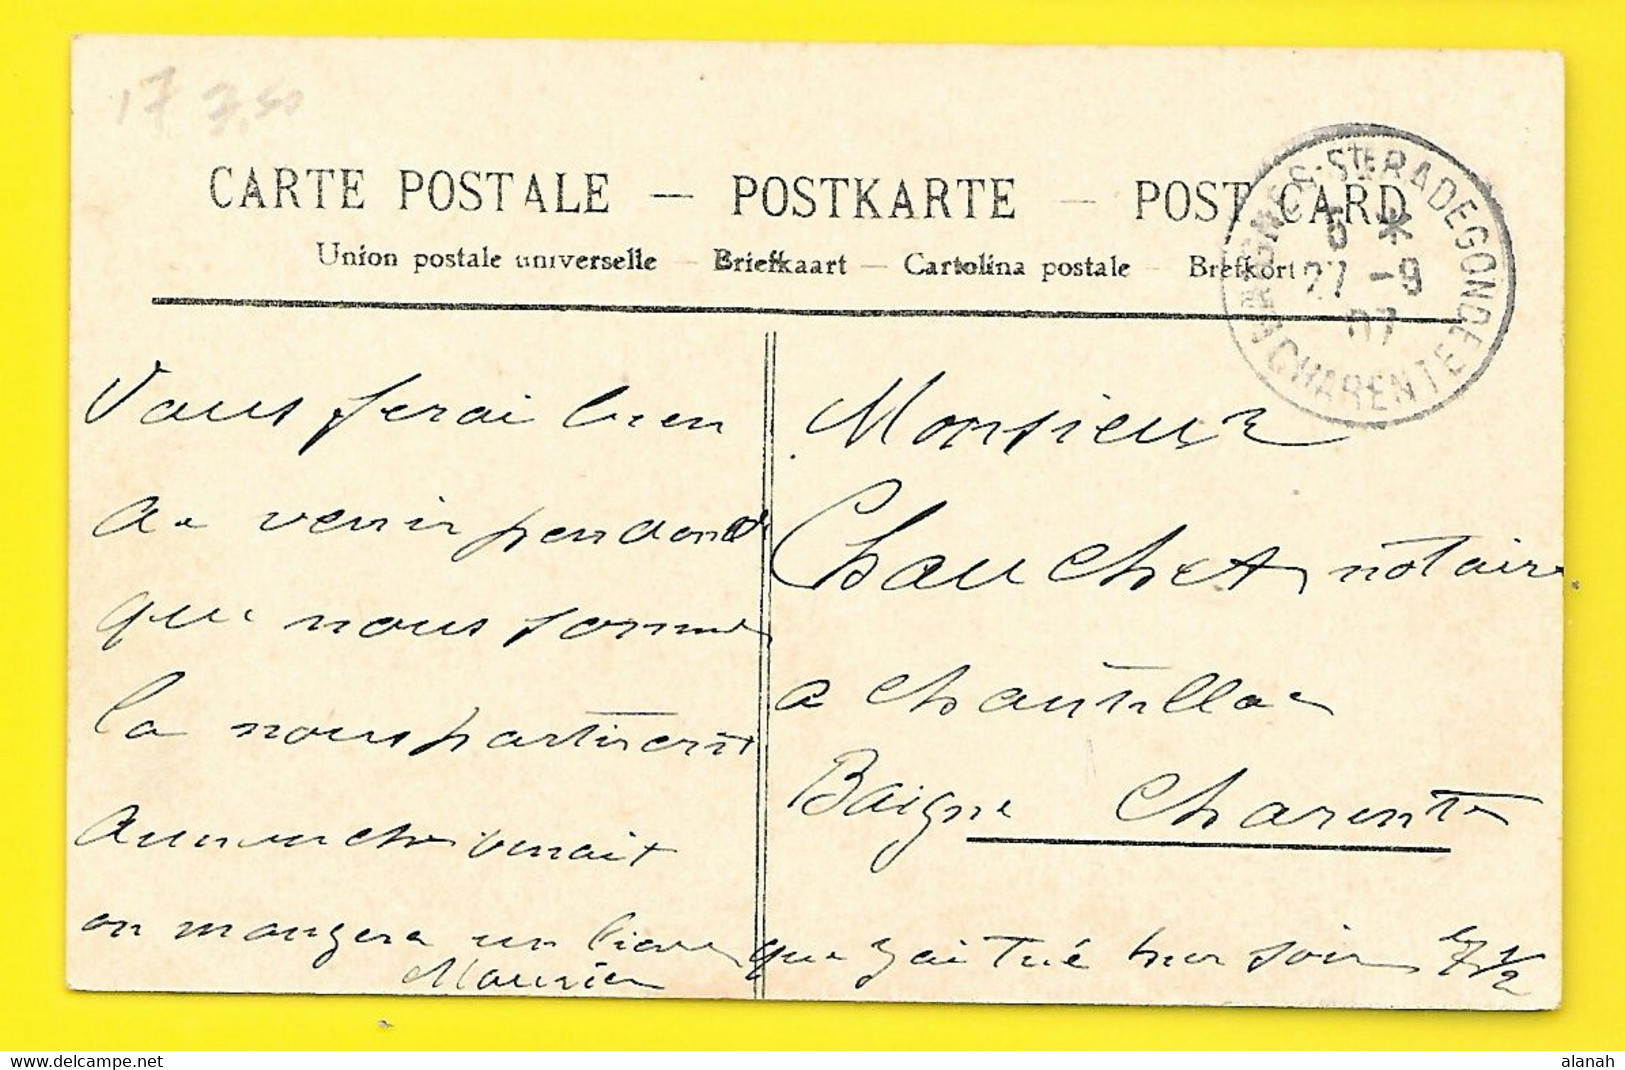 17 7,50
CARTE POSTALE — POSTKARTE — POST CARD
Union postale universelle — Briefkaart — Cartolina postale — Brefkort
BAIGNES-STE RADEGONDE
5 *
27 -9
07
CHARENTE
Vous ferai bien
de venir pendand
que nous somme
la nous partiront
dimenche venait
on mangera un lievre que g'ai tué hier soir
Maurice
7 1/2
Monsieur
Chauchet notaire
a Chantillac
Baigne Charente
alanah